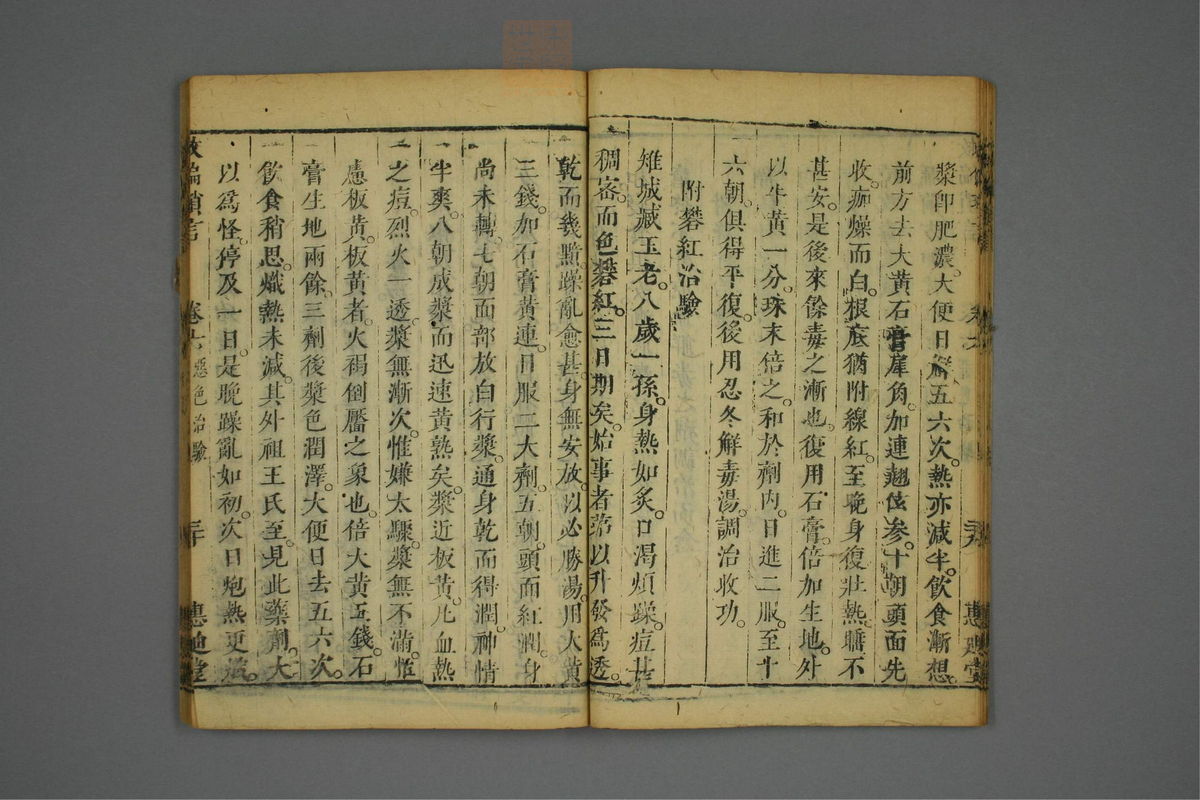 漿即肥濃。大便日解五六次。熱亦減半。飲食漸想。
前方去大黃石膏犀角。加連翹玄參。十朝頭面先
收。痂燥而白。根底猶附線紅。至晚身復壯熱。瞎不
甚安。是後來餘毒之漸也。復用石膏。倍加生地。外
以牛黃一分。珠末倍之。和於劑内。日進二服。至十
六朝。俱得平復。後用忍冬解毒湯。調治收功。
附礬紅治驗
雉城臧玉老。八歲一孫。身熱如炙。口渴煩躁。痘甚
稠密。而色礬紅。三日期矣。始事者第以升發為透。
乾而幾黯。躁亂愈甚。身無安放。以必勝湯。用大黃
三錢。加石膏黃連。日服二大劑。五朝。頭面紅潤。身
尚未轉。七朝面部放白行漿。通身乾而得潤。神情
半爽。八朝成漿而迅速黃熟矣。漿近板黃。凡血熱
之痘。烈火一透。漿無漸次。惟嫌太驟。漿無不滿。惟
慮板黃。板黃者。火褐倒靨之象也。倍大黃五錢。石
膏生地兩餘。三劑後漿色潤澤。大便日去五六次。
飲食稍思。熾熱未減。其外祖王氏至。見此藥劑。大
以為怪。停及一日。是晚躁亂如初。次日炮熱更
救偏瑣言 卷六 惡色治驗 三十 惠迪堂